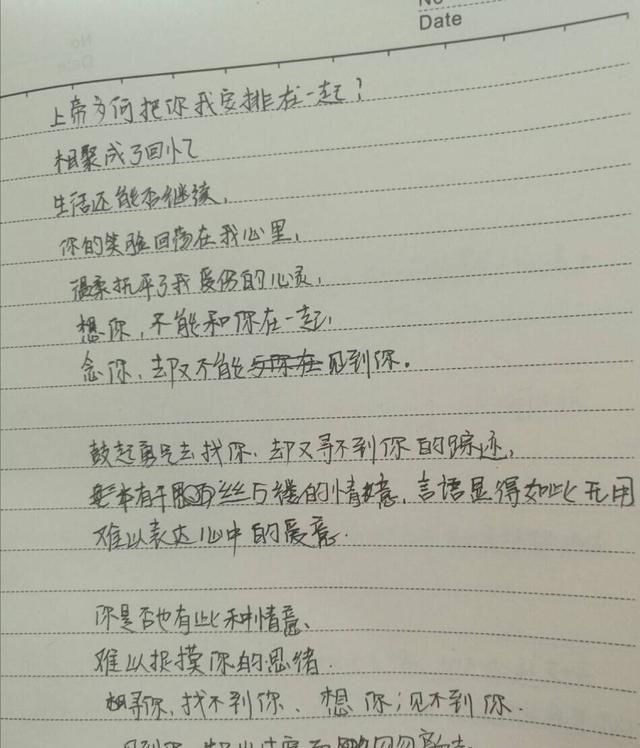 No
Date
上帝为何把你我安排在一起？
相聚成了回忆
生活还能否继续，
你的笑脸回荡在我心里，
温柔抚平了我受伤的心灵，
想你，不能和你在一起，
念你，却又不能见到你。
鼓起勇气去找你，却又寻不到你的踪迹，
有千思万丝万缕的情意，言语显得如此无用
难以表达心中的爱意.
你是否也有此种情意、
难以捉摸你的思绪.
想寻你，找不到你、想你；见不到你.